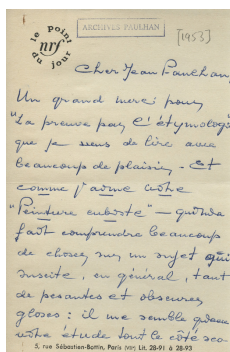 le point
nrf
du jour
ARCHIVES PAULHAN
[1953]
Cher Jean Paulhan,
Un grand merci pour
"La preuve par l'étymologie"
que je viens de lire avec
beaucoup de plaisir. Et
comme j'aime votre
"Peinture cubiste" — qui
fait comprendre beaucoup
de choses sur un sujet qui
suscite, en général, tant
de pesantes et obscures
gloses : il me semble
votre étude tout le côté
5, rue Sébastien-Bottin, Paris (VIIe) Lit. 28-91 à 28-93